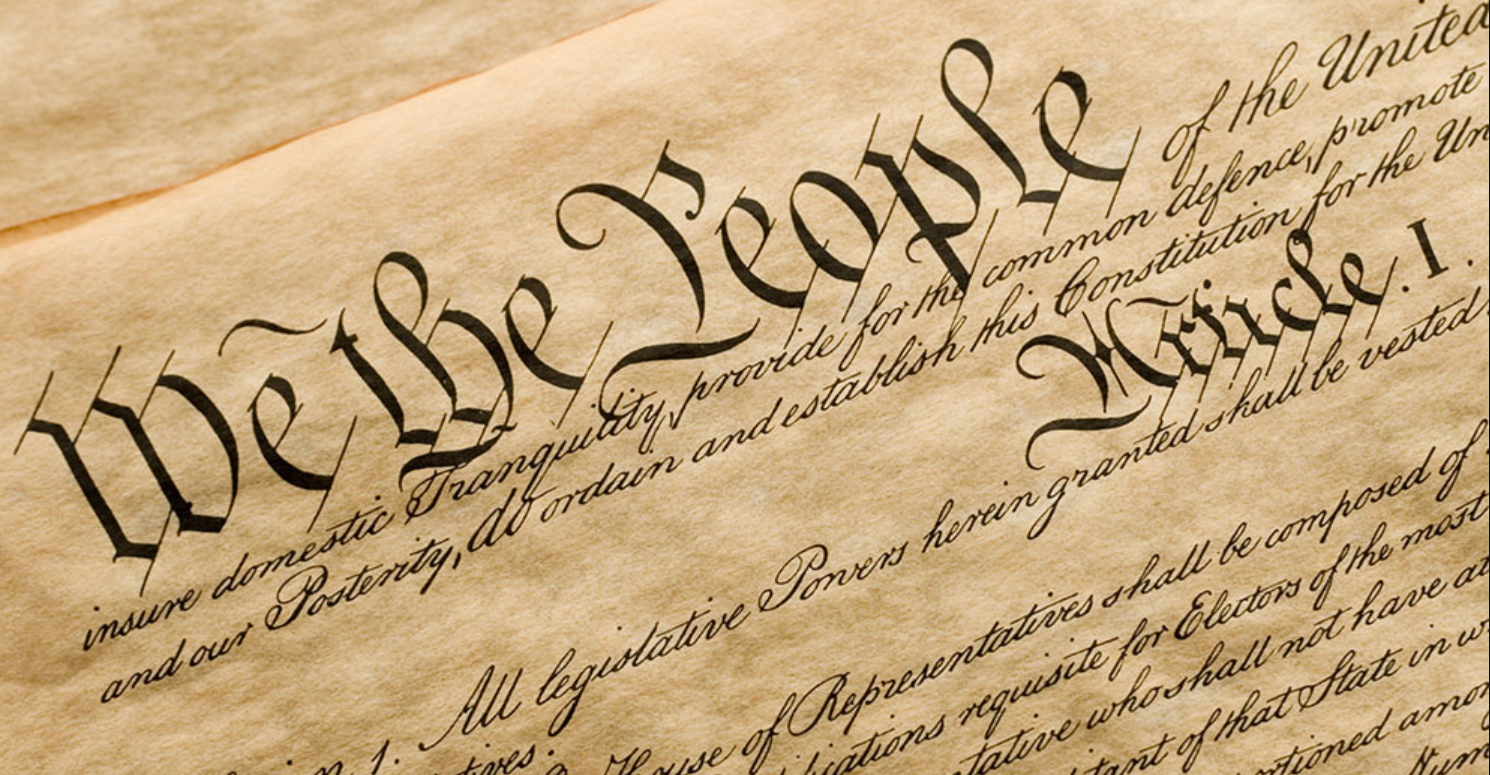 We the People of the United
insure domestic Tranquility, provide for the common defence, promote
and our Posterity, do ordain and establish this Constitution for the Un
Article. I.
1. All legislative Powers herein granted shall be vested
tives.
House of Representatives shall be composed of
ications requisite for Electors of the most
tative who shall not have
tant of that State in
tioned amo
Num